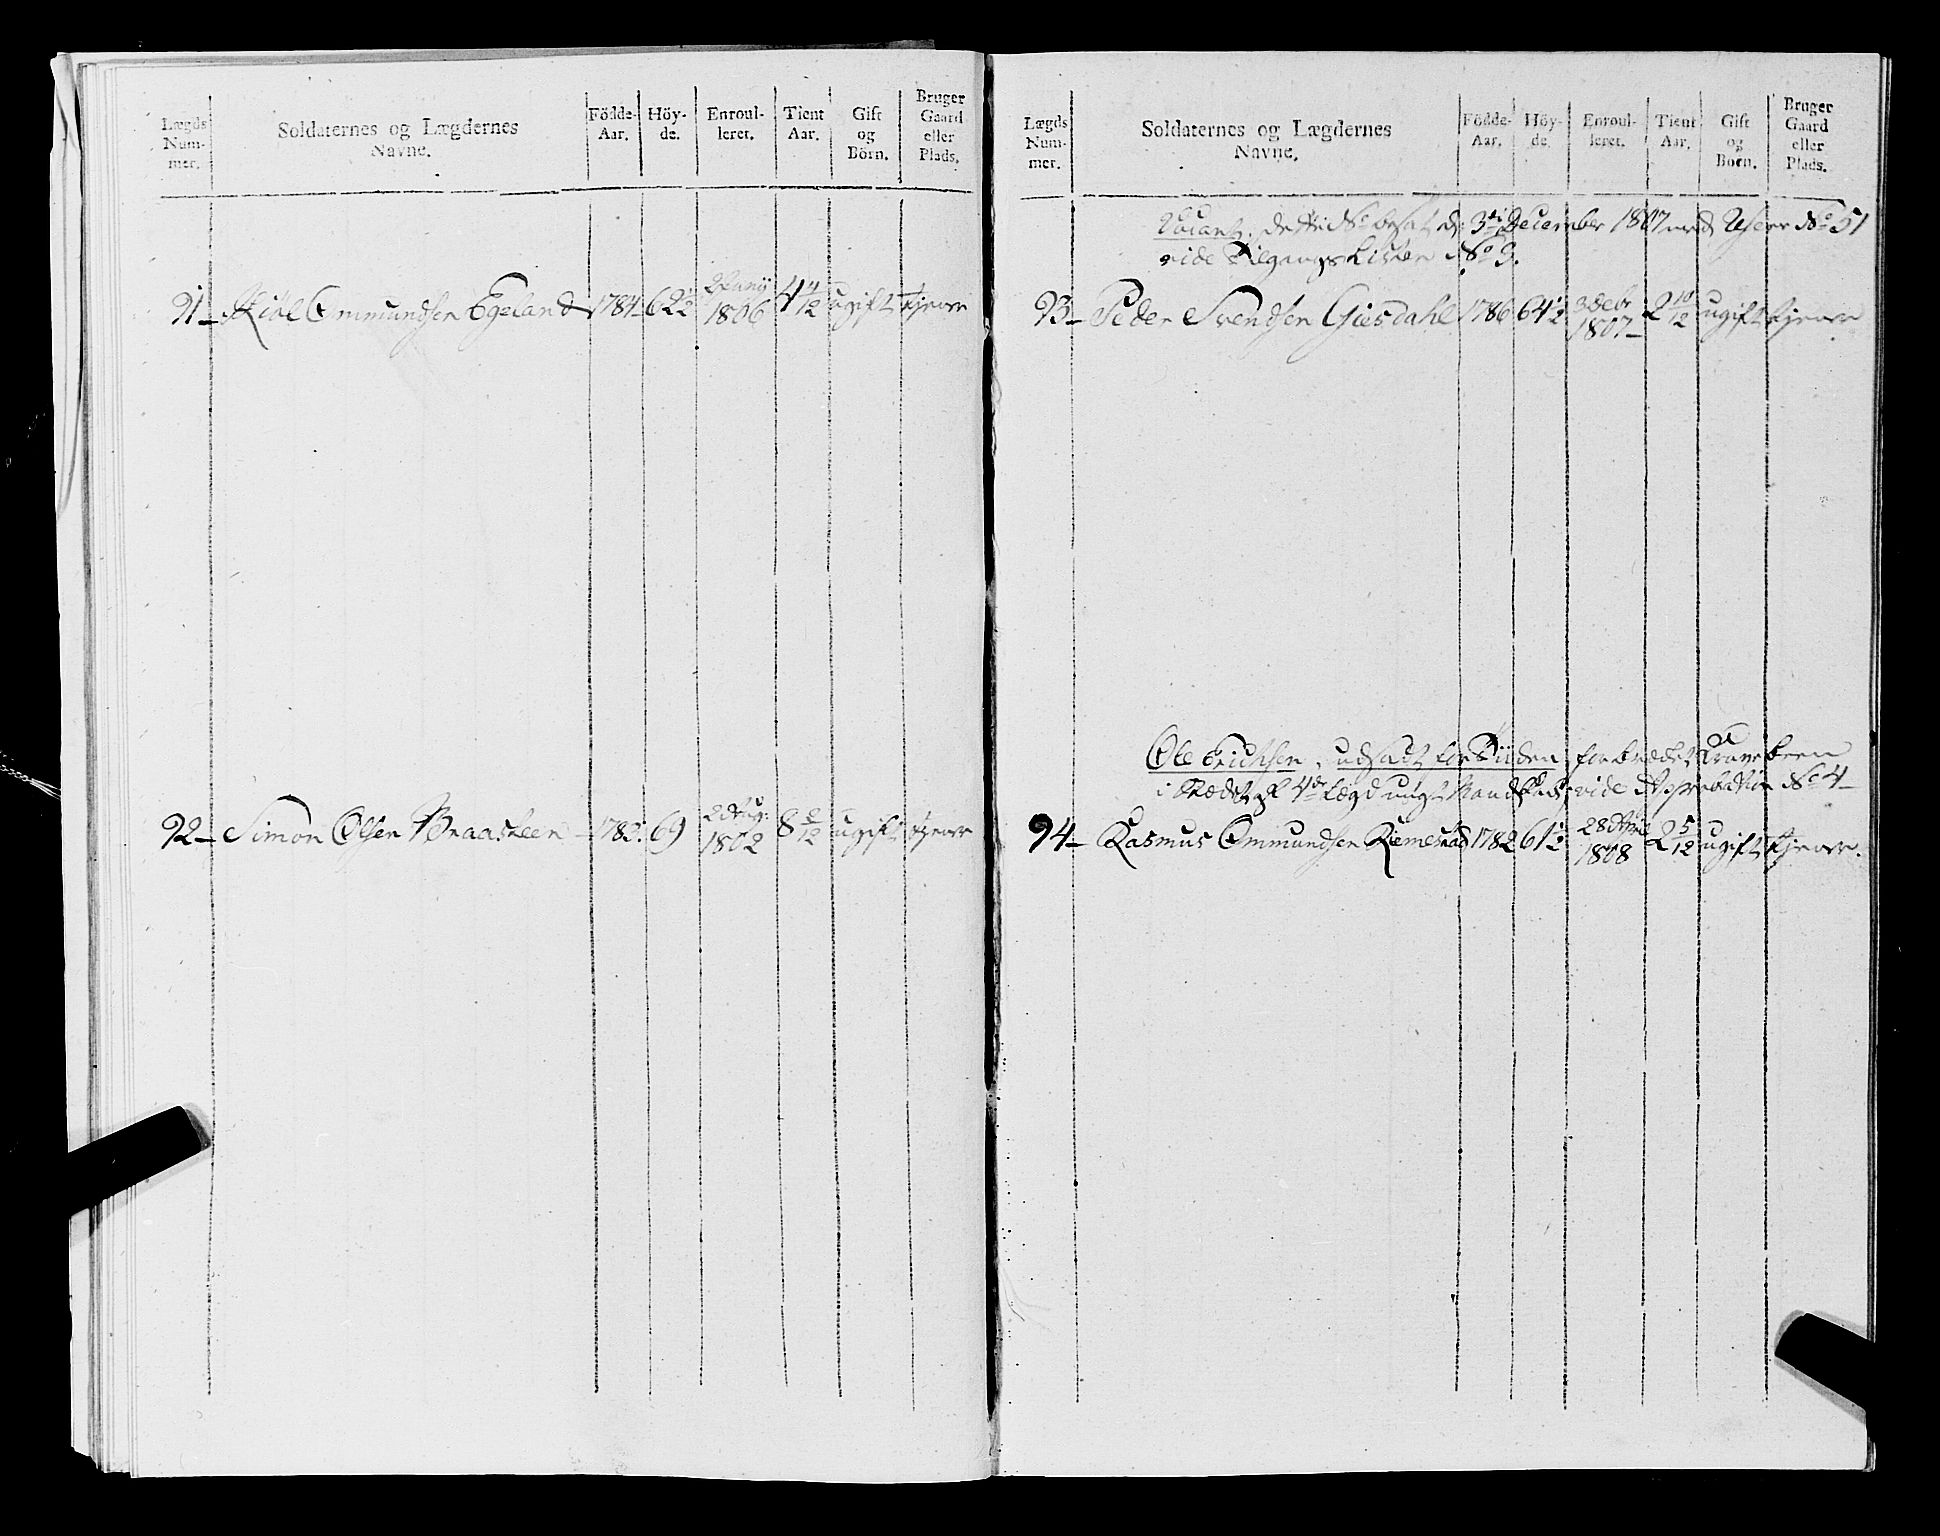 Lægds Num- mer.
Soldaternes og Lægdernes Navne.
Födde- Aar.
Höy- de.
Enroul- leret.
Tient Aar.
Gift og Börn.
Bruger Gaard eller Plads.
91 Ommundsen Egeland 1784 62½ 1806 4 4/12 ugift tjener
92 Simon Olsen Braasteen 1782. 69 2 Aug: 1802 8 2/12 ugift tjener
Lægds Num- mer.
Soldaternes og Lægdernes Navne.
Födde- Aar.
Höy- de.
Enroul- leret.
Tient Aar.
Gift og Börn.
Bruger Gaard eller Plads.
Vacant. dette No besat d: 3die December 1807 med No 51
vide Tilgangs Listen No 3.
93 Peder Svendsen Giesdahl 1786 64½ 3 Debr 1807 2 10/12 ugift tjener
Ole Erichsen, udsadt for Tiiden, for brekket
i Stædet 4de Lægd ungt Mandskab, vide Approbation No 4
94 Rasmus Ommundsen Riemestad 1782 61½ 28 April 1808 2 5/12 ugift tjener.